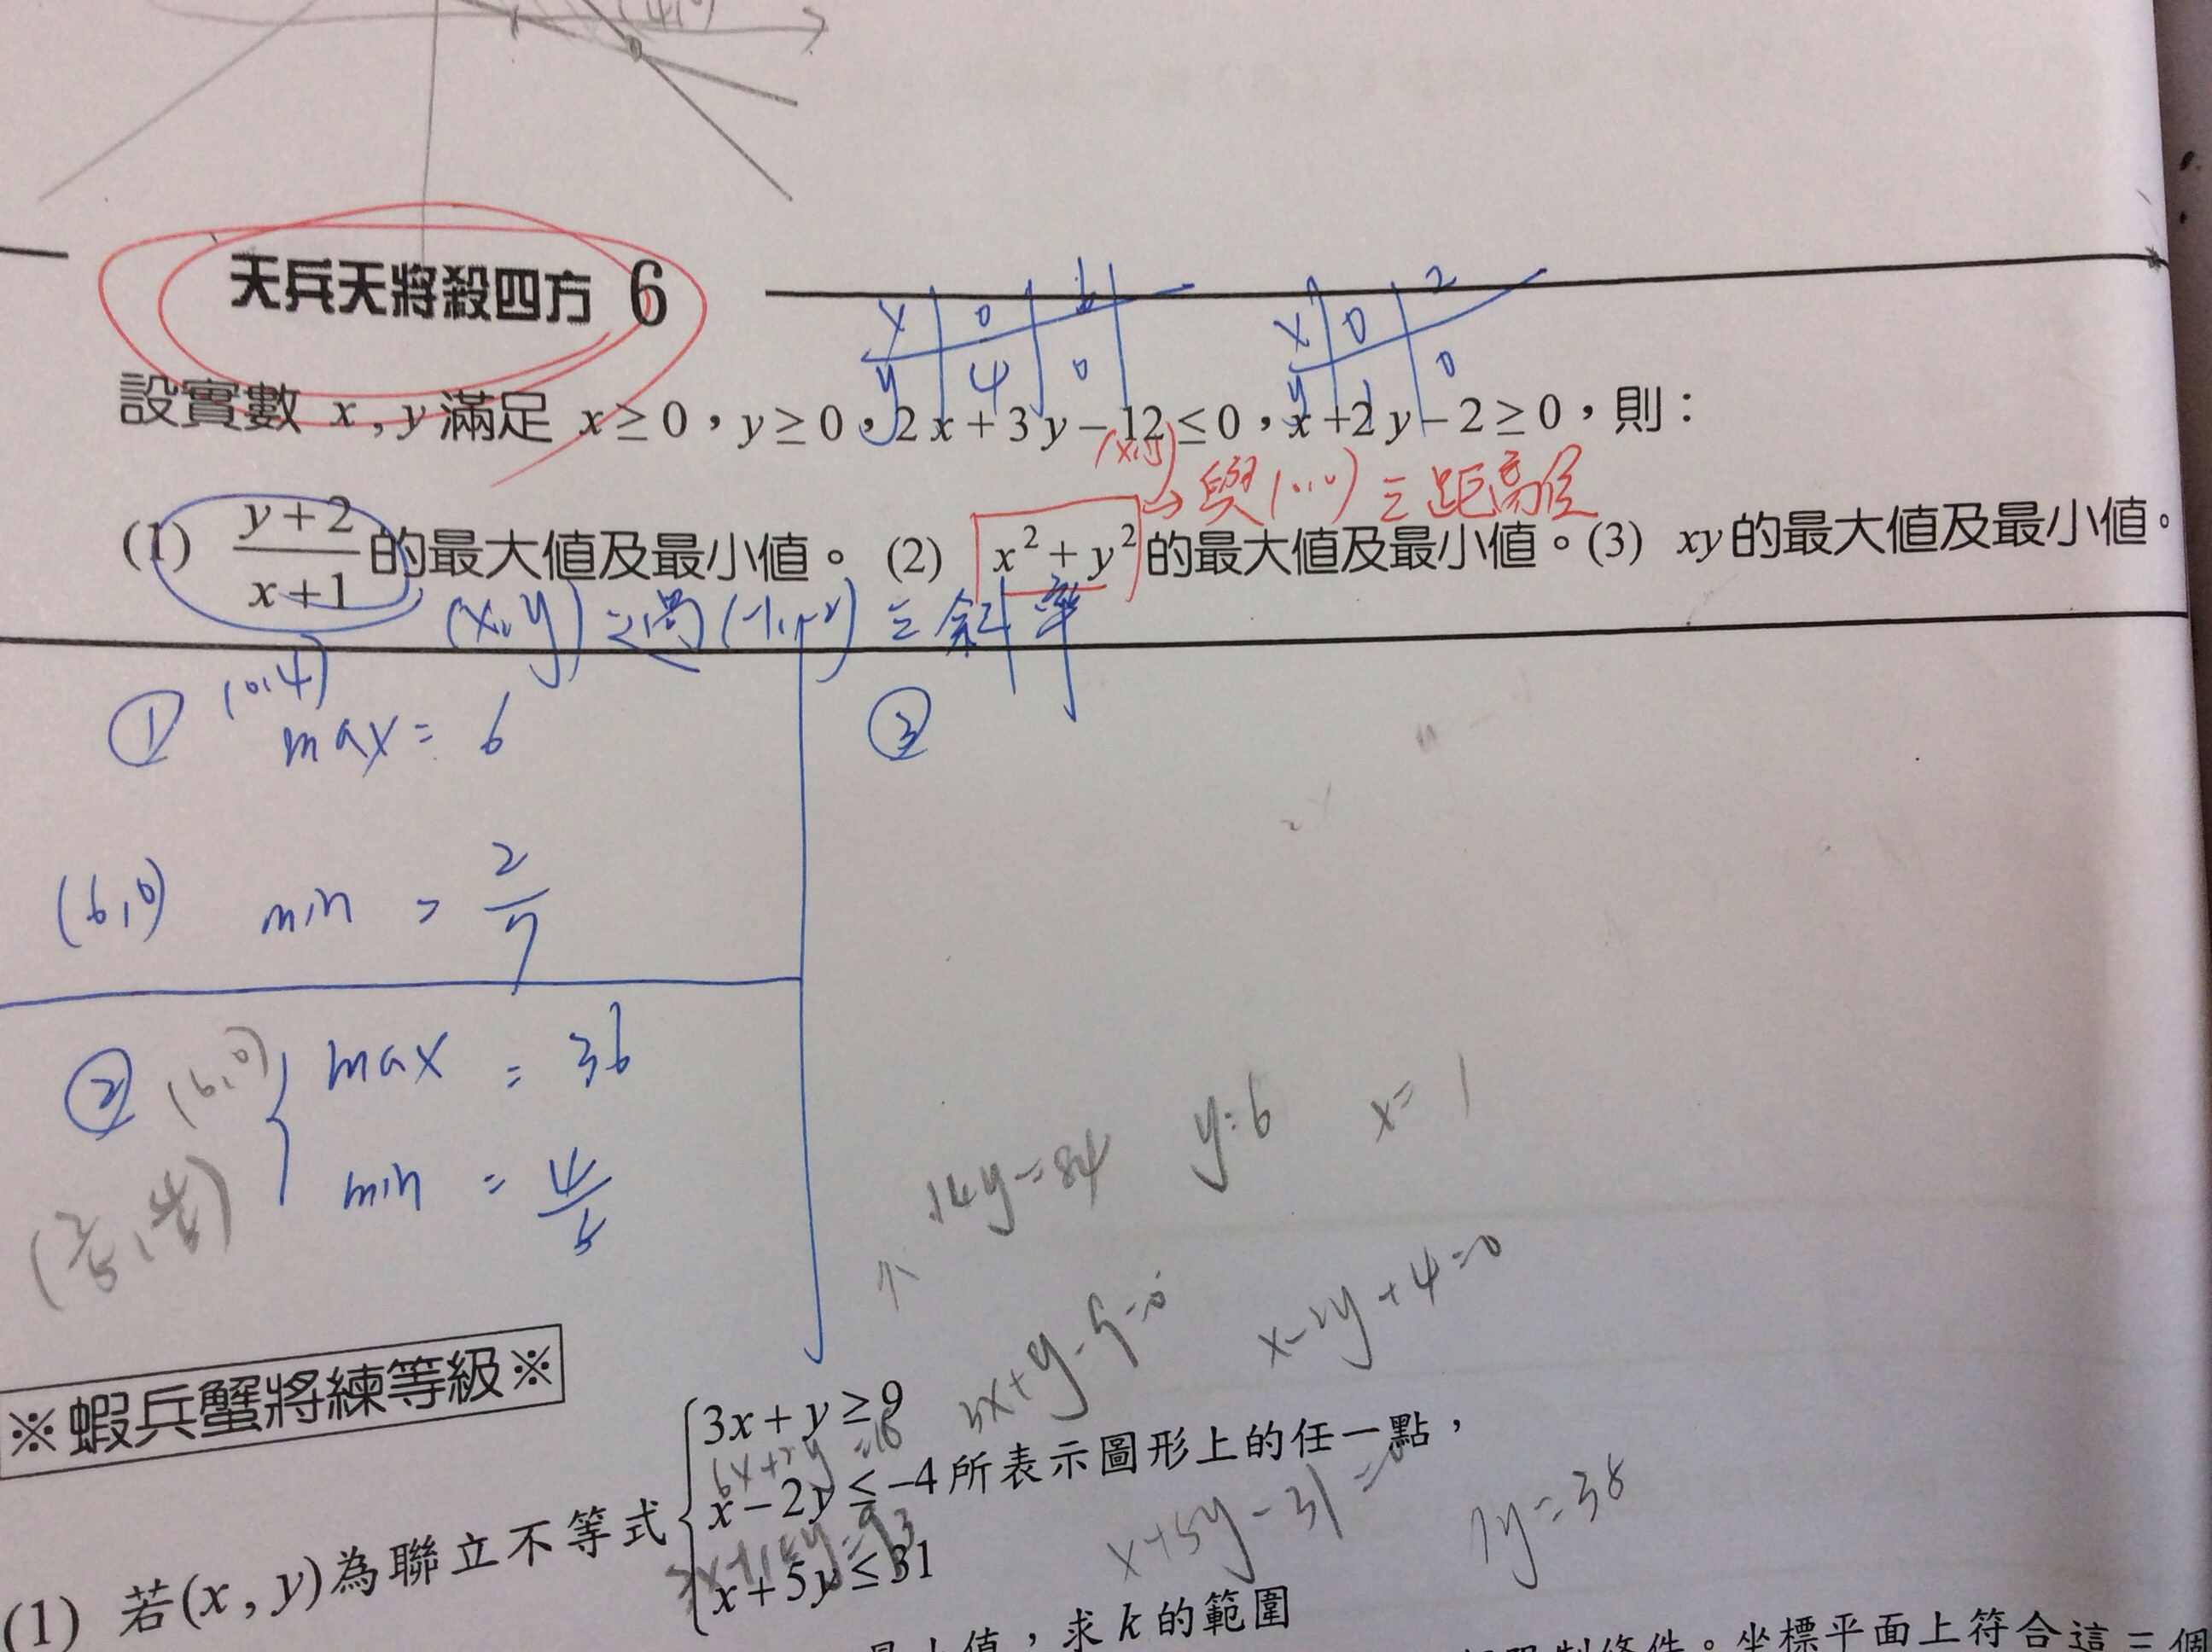 天兵天將殺四方 6
x 0 6
y 4 0
x 0 2
y 1 0
設實數 x , y 滿足 x ≥ 0,y ≥ 0,2x + 3y − 12 ≤ 0,x + 2y − 2 ≥ 0,則:
(x,y)
→ 與(0,0) 之距離
(1) \frac{y+2}{x+1} 的最大值及最小值。 (2) x² + y² 的最大值及最小值。(3) xy 的最大值及最小值。
(x,y) 過 (-1,-2) 之斜率
① (0,4)
max = 6
③
(6,0) min = \frac{2}{7}
② (6,0) max = 36
min = \frac{4}{5}
14y=84 y=6 x=1
x-2y+4=0
3x+y-9=0
※蝦兵蟹將練等級※
(1) 若(x , y)為聯立不等式 { 3x + y ≥ 9
x − 2y ≤ −4 所表示圖形上的任一點,
x + 5y ≤ 31
x+5y-31=0 7y=38
值,求 k 的範圍
制條件。坐標平面上符合這一個